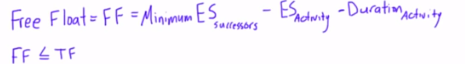 Free Float = FF = Minimum ES successors - ES Activity - Duration Activity
FF ≤ TF